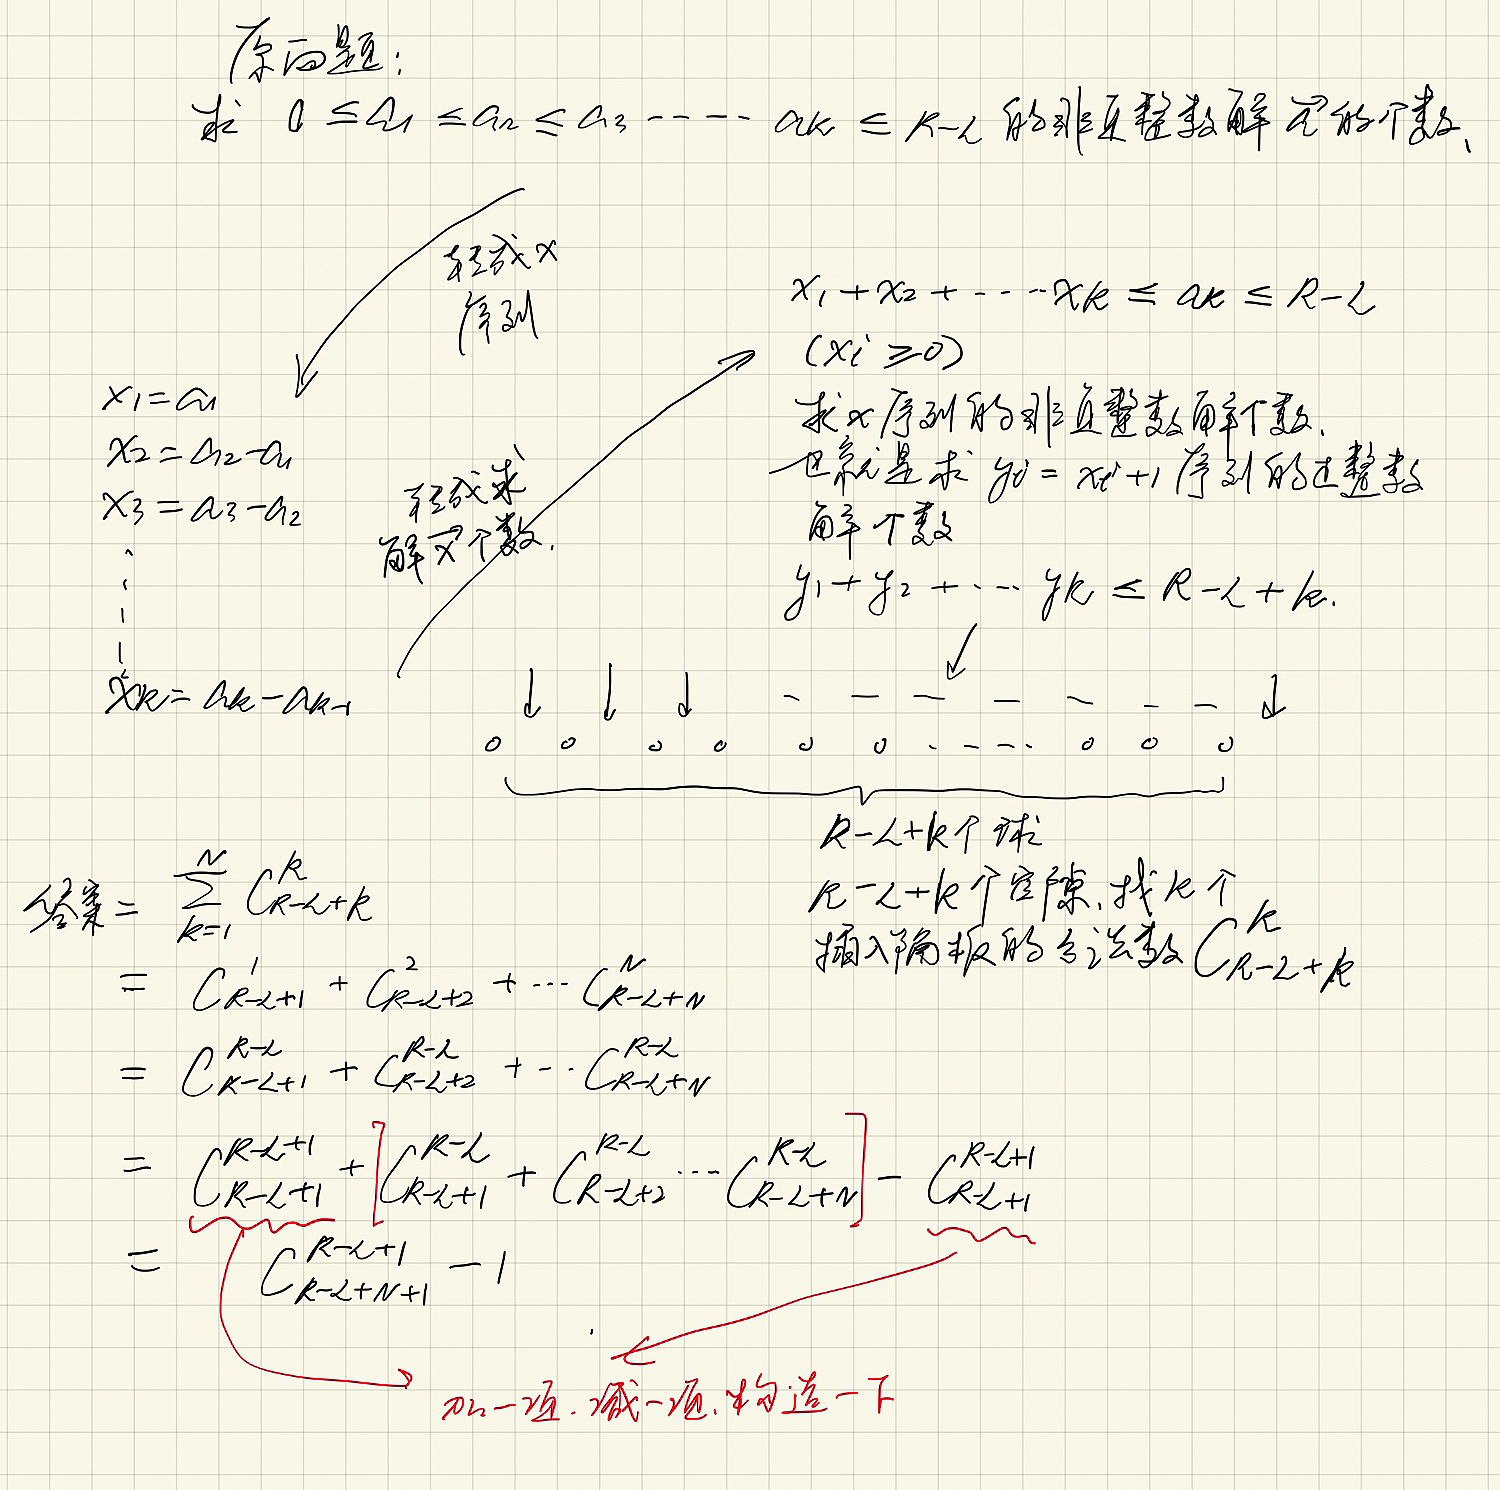 原问题:
求 0 ≤ a₁ ≤ a₂ ≤ a₃ ---- aₖ ≤ R-L 的非负整数解 a⃗ 的个数、
转成x
序列
x₁ = a₁
x₂ = a₂-a₁
x₃ = a₃-a₂
xₖ = aₖ-aₖ₋₁
转成求
解 x⃗ 个数.
x₁+x₂+----xₖ ≤ aₖ ≤ R-L
(xᵢ ≥0)
求x序列的非负整数解个数.
也就是求 yᵢ = xᵢ+1 序列的正整数
解个数
y₁+y₂+··· yₖ ≤ R-L+k.
R-L+k个球
R-L+k个空隙,找k个
插入隔板的方法数 C_{R-L+k}^{k}
答案= ∑_{k=1}^{N} C_{R-L+k}^{k}
= C_{R-L+1}^{1} + C_{R-L+2}^{2} + ··· C_{R-L+N}^{N}
= C_{R-L+1}^{R-L} + C_{R-L+2}^{R-L} + ··· C_{R-L+N}^{R-L}
= C_{R-L+1}^{R-L+1} + [C_{R-L+1}^{R-L} + C_{R-L+2}^{R-L} ··· C_{R-L+N}^{R-L}] - C_{R-L+1}^{R-L+1}
= C_{R-L+N+1}^{R-L+1} -1
加一项.减一项,构造一下